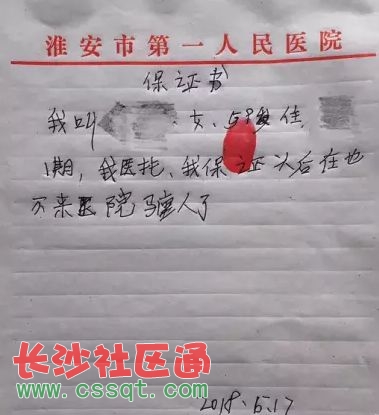 淮安市第一人民医院
保证书
我叫 女、 住
1期，我医托、我保证以后在也
不来医院骗人了
长沙社区通
www.cssqt.com
2018.6.17